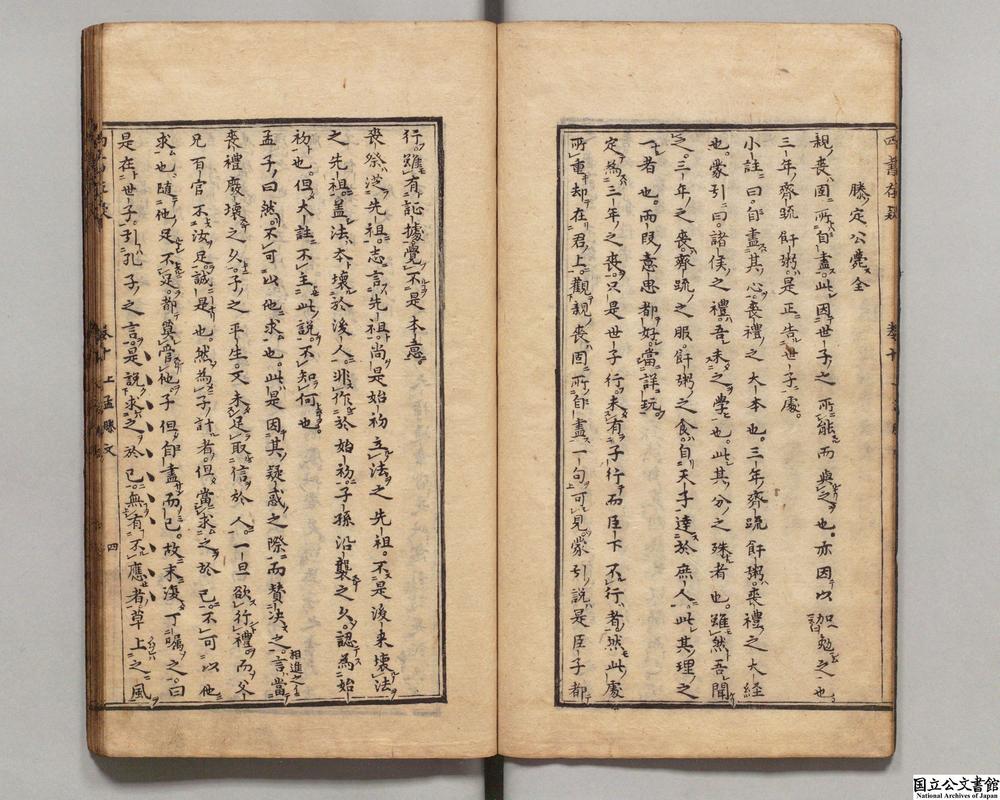 四書存疑
滕定公薨全
親喪固所自盡此因世子之所能而與之也亦因以加勉之也
三年齊疏飦粥是正告世子處
小註曰自盡其心喪禮之大本也三年齊疏飦粥喪禮之大経
也蒙引曰諸侯之禮吾未之學也此其分之殊者也雖然吾聞
之三年之喪齊疏之服飦粥之食自天子達於庶人此其理之
一者也兩段意思都好當詳玩
定為三年之喪只是世子行未有子行而臣下不行者然此處
所重却在君上觀親喪固所自盡一句可見蒙引說是臣子都
行雖有証據覺不是本意
喪祭從先祖志言先祖尚是始初立法之先祖不是後来壊法
之先祖盖法夲壊於後人非作於始初子孫沿襲之久認為始
初也但大註不主此說不知何也
孟子曰然不可以他求也此是因其疑惑之際而賛决之言當
相進之
喪禮廢壊之久子之平生又未足取信於人一旦欲行禮而父
兄百官不汝足誠是也然為子計者但當求之於己不可以他
求也随他足不足都莫管他子但自盡而已故末復丁嘱之曰
是在世子引孔子之言是說求之於己無有不應者草上之風
卷十 上孟滕文 四
国立公文書館
National Archives of Japan